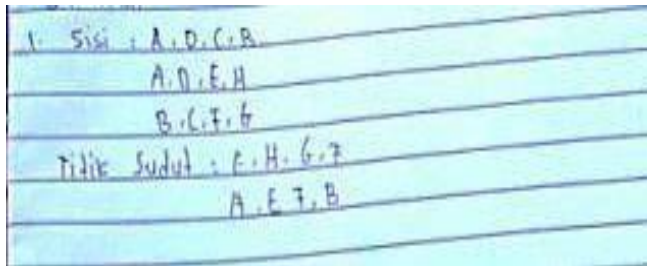 1. Sisi : A, D, C, B
A, D, E, H
B, C, F, G
Titik Sudut : E, H, G, F
A, E, F, B